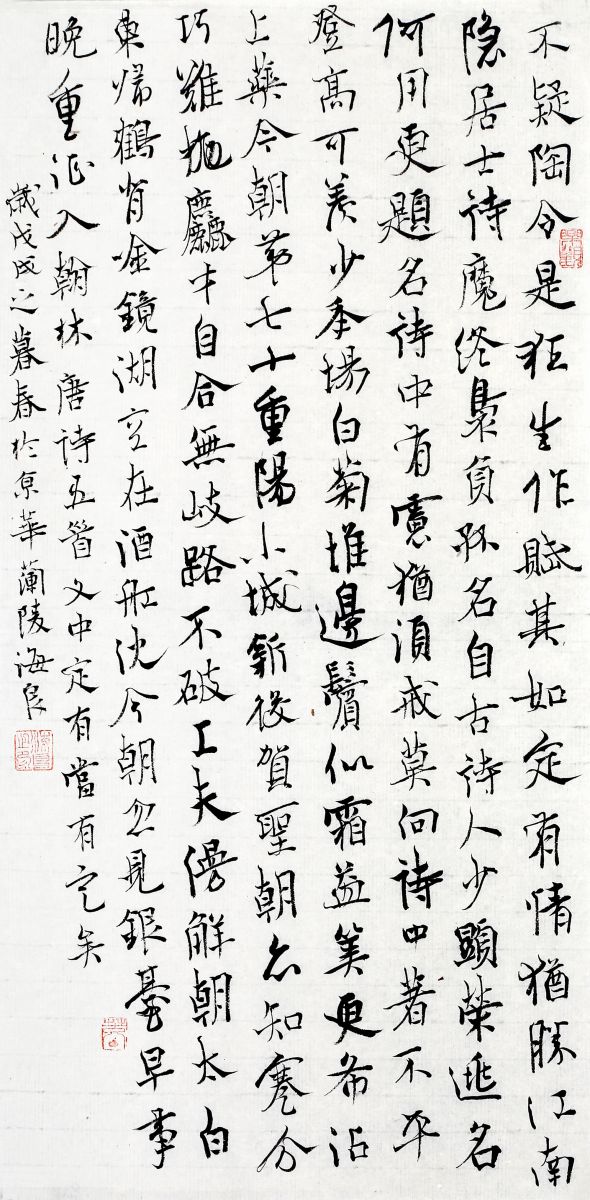 不疑陶令是狂生作賦其如定有情猶勝江南
隐居士詩魔終裊負孤名自古詩人少顯榮逃名
何用更題名詩中有慮猶須戒莫向詩中著不平
登高可羨少年場白菊堆邊鬢似霜益算更希沾
上藥今朝第七十重陽小城新後賀聖朝亦知蹇分
巧難抛麤才自合無岐路不破工夫漫解朝太白
東歸鶴背吟鏡湖空在酒舡沈今朝忽見銀臺早事
晚重征入翰林唐詩五首文中定有當有定矣
歲戊戌之暮春於京華蘭陵海良